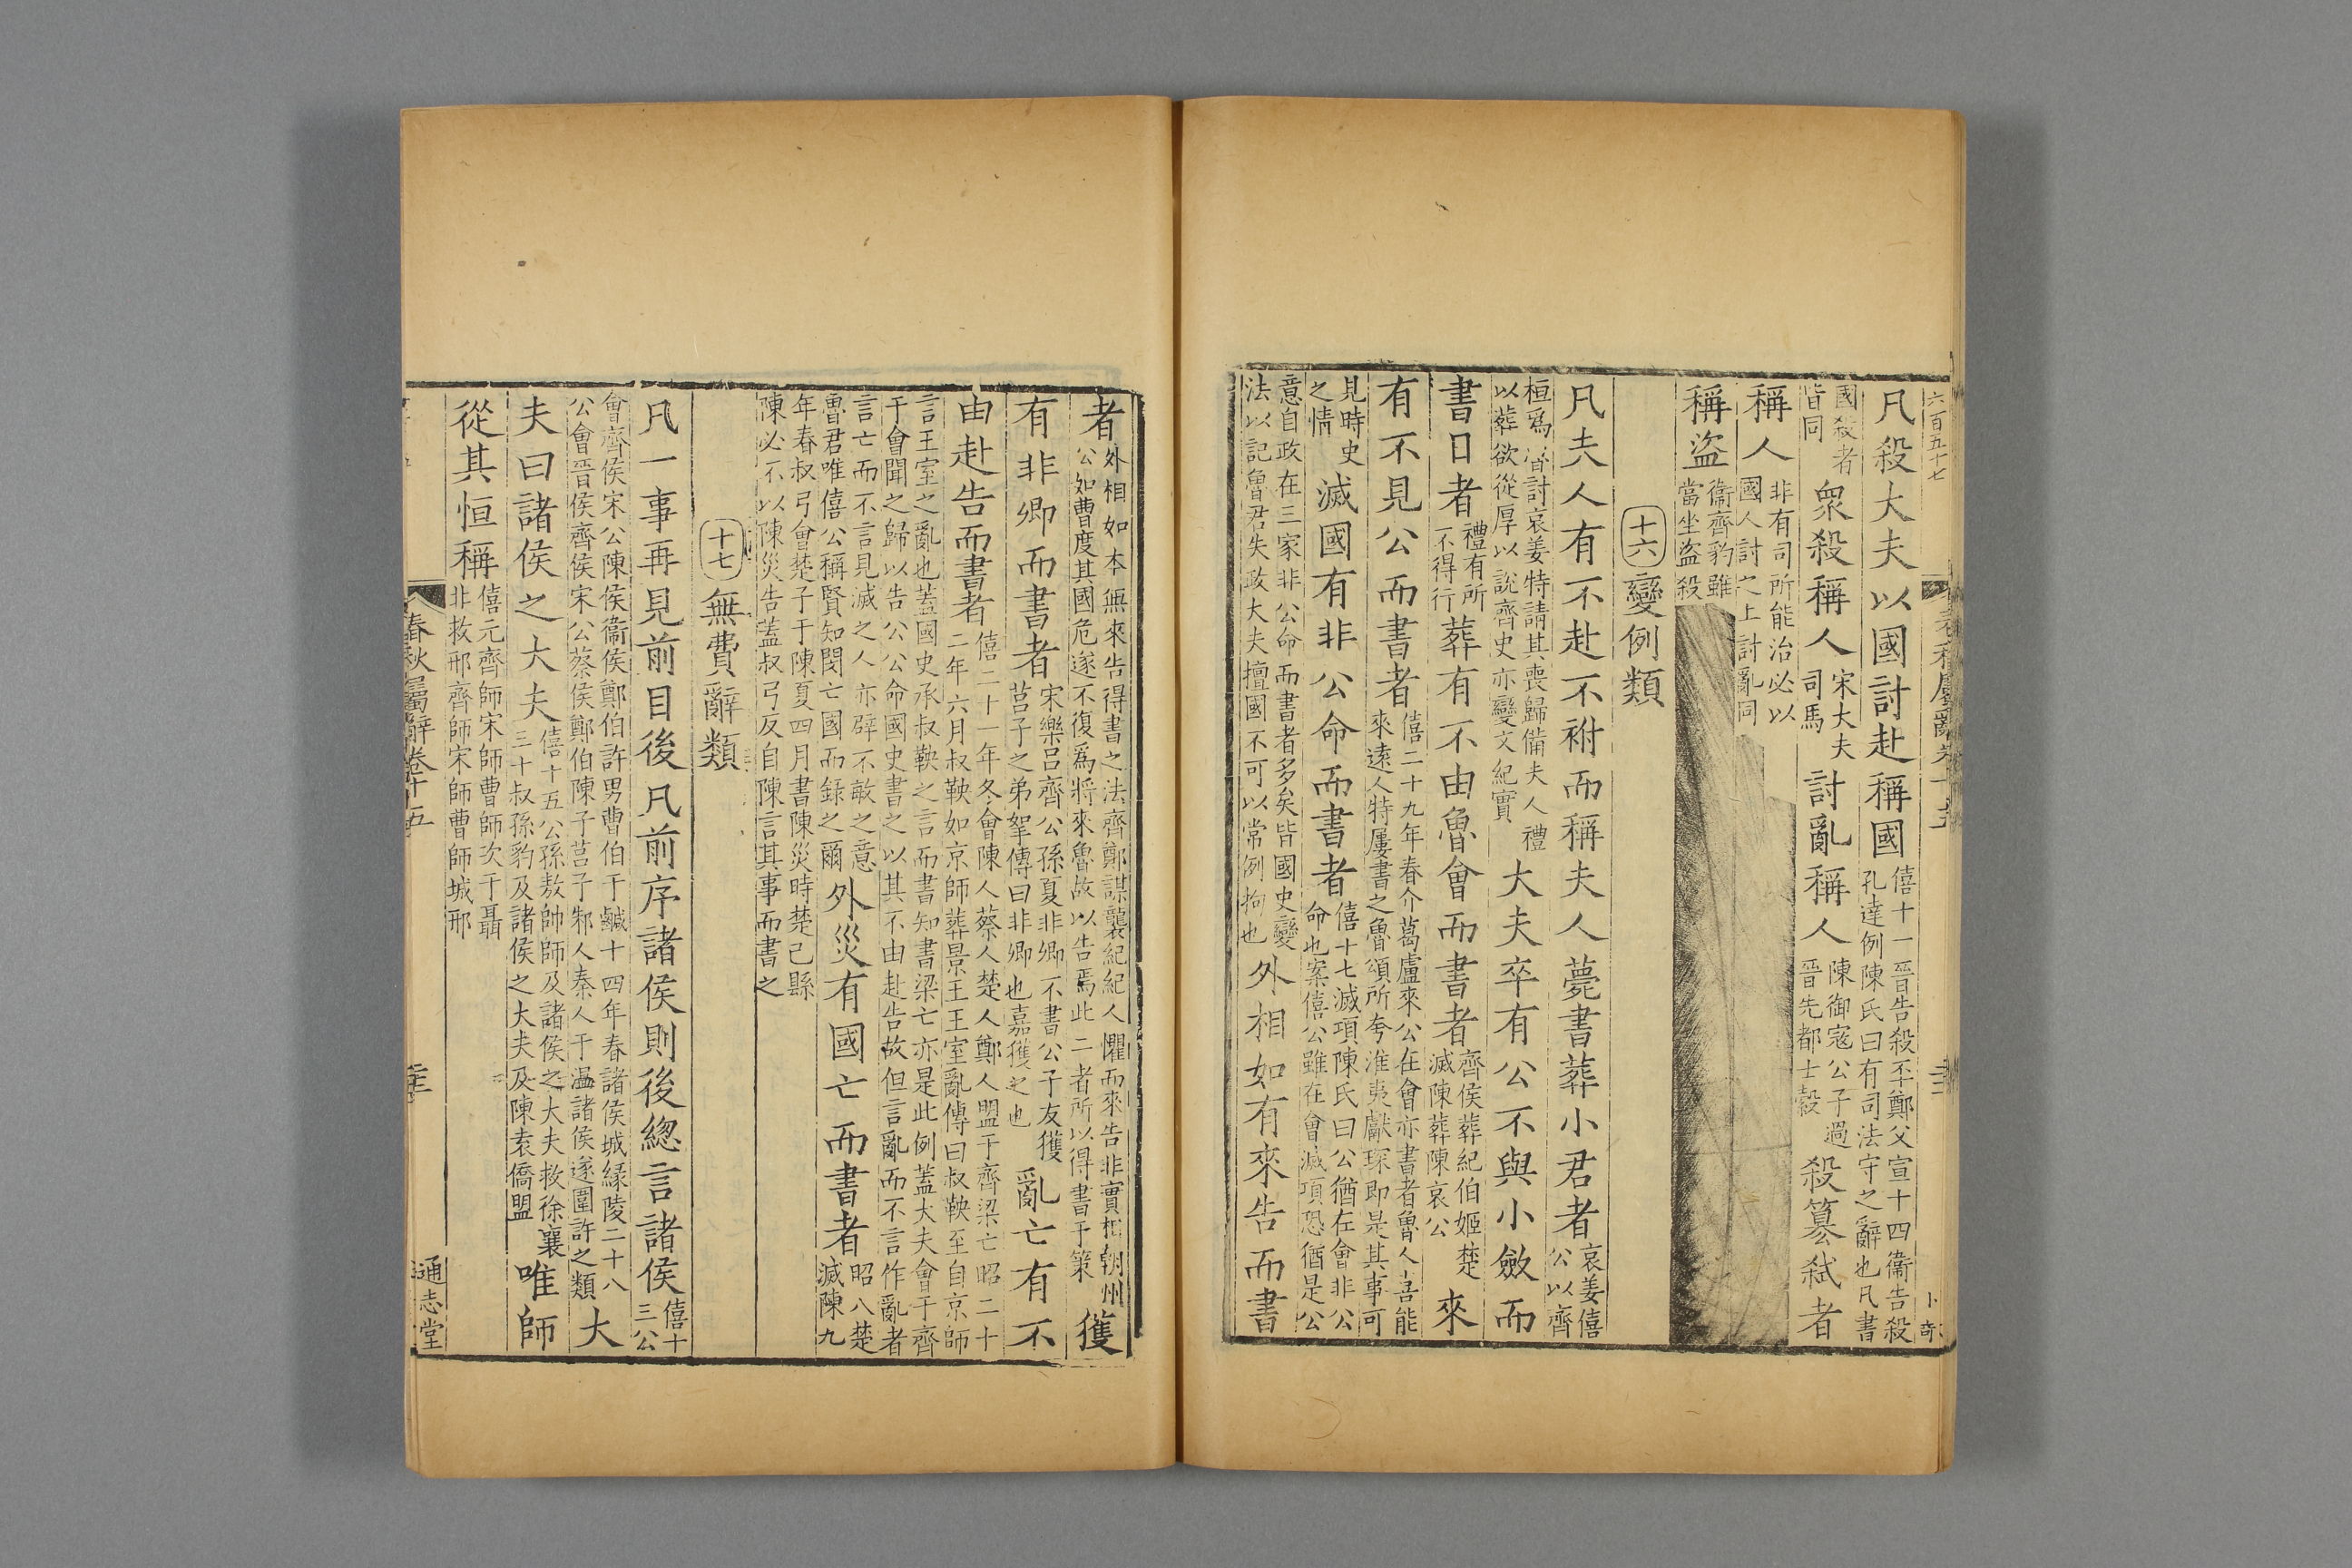 六百五十七
卜奇
凡殺大夫以國討赴稱國僖十一晉告殺丕鄭父宣十四衞告殺孔達例陳氏曰有司法守之辭也凡書
國殺者皆同衆殺稱人宋大夫司馬討亂稱人陳御寇公子過晉先都士縠殺簒弑者
稱人非有司所能治必以國人討之上討亂同
稱盜衞齊豹雖當坐盜殺
十六變例類
凡夫人有不赴不祔而稱夫人薨書葬小君者哀姜僖公以齊
桓爲討哀姜特請其喪歸備夫人禮以葬欲從厚以說齊史亦變文紀實大夫卒有公不與小斂而
書日者禮有所不得行葬有不由魯會而書者齊侯葬紀伯姬楚滅陳葬陳哀公來
有不見公而書者僖二十九年春介葛盧來公在會亦書者魯人喜能來遠人特屢書之魯頌所夸淮夷獻琛即是其事可
見時史之情滅國有非公命而書者僖十七滅項陳氏曰公猶在會非公命也案僖公雖在會滅項恐猶是公
意自政在三家非公命而書者多矣皆國史變法以記魯君失政大夫擅國不可以常例拘也外相如有來告而書
者外相如本無來告得書之法齊鄭謀襲紀紀人懼而來告非實相朝州公如曹度其國危遂不復爲將來魯故以告焉此二者所以得書于策獲
有非卿而書者宋樂呂齊公孫夏非卿不書公子友獲莒子之弟挐傳曰非卿也嘉獲之也亂亡有不
由赴告而書者僖二十一年冬會陳人蔡人楚人鄭人盟于齊梁亡昭二十二年六月叔鞅如京師葬景王王室亂傳曰叔鞅至自京師
言王室之亂也蓋國史承叔鞅之言而書知書梁亡亦是此例蓋大夫會于齊于會聞之歸以告公公命國史書之以其不由赴告故但言亂而不言作亂者
言亡而不言見滅之人亦辟不敢之意魯君唯僖公稱賢知閔亡國而錄之爾外災有國亡而書者昭八楚滅陳九
年春叔弓會楚子于陳夏四月書陳災時楚已縣陳必不以陳災告蓋叔弓反自陳言其事而書之
十七無費辭類
凡一事再見前目後凡前序諸侯則後總言諸侯僖十三公
會齊侯宋公陳侯衞侯鄭伯許男曹伯于鹹十四年春諸侯城緣陵二十八公會晉侯齊侯宋公蔡侯鄭伯陳子莒子邾人秦人于溫諸侯遂圍許之類大
夫曰諸侯之大夫僖十五公孫敖帥師及諸侯之大夫救徐襄三十叔孫豹及諸侯之大夫及陳袁僑盟唯師
從其恒稱僖元齊師宋師曹師次于聶非救邢齊師宋師曹師城邢
春秋屬辭卷十五
通志堂